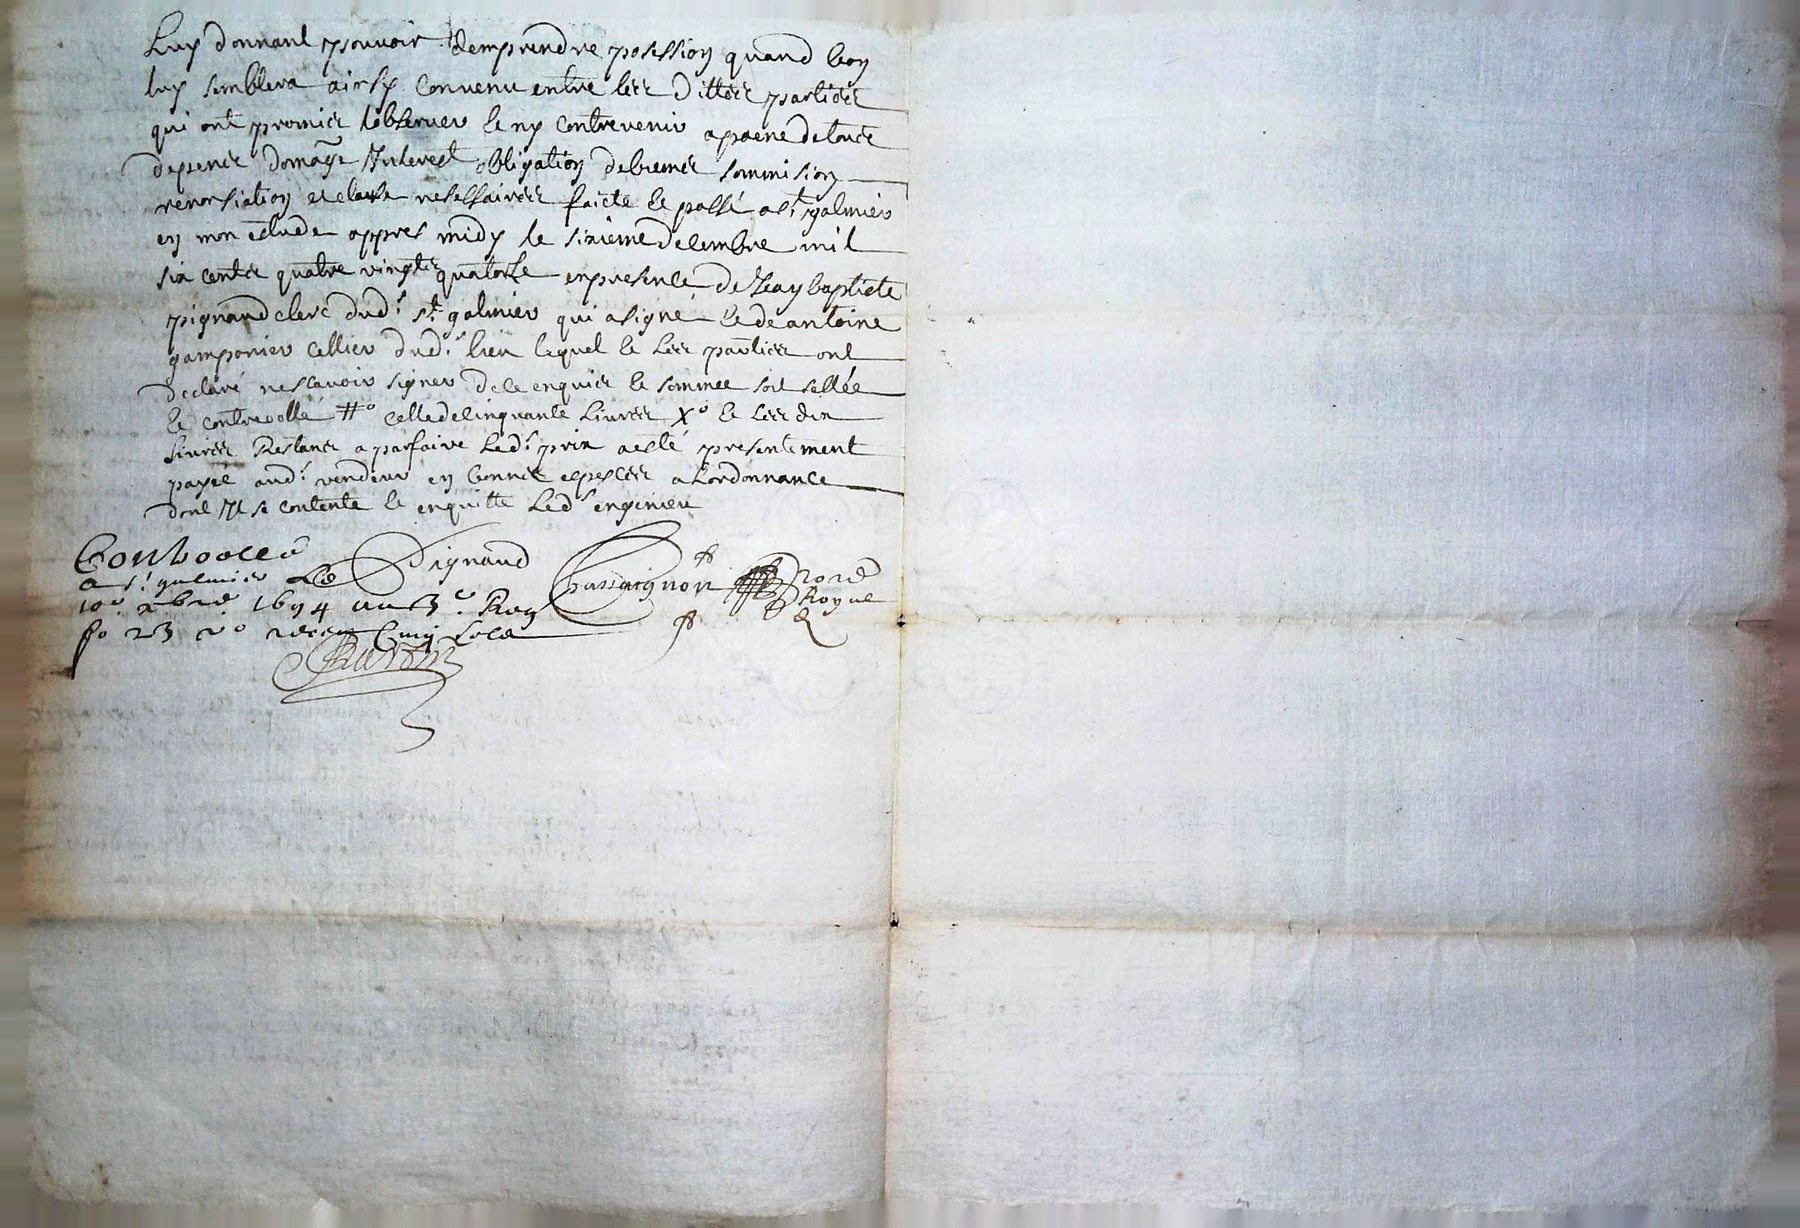 Luy donnant pouvoir demprendre posession quand bon
luy semblera ainsy convenu entre les dittes parties
qui ont promis lobserver & ny contrevenir a paene de tous
depens domage Interest obligation de biens sommision
renonsiation et clause nesessaires faicte & passé a St galmier
en mon estude appres midy le sixieme decembre mil
six cents quatre vingts quatorse en presence de Jean baptiste
pignaud clerc dudt St galmier qui a signé & de antoine
gamponier cellier dudt lieu lequel & les parties ont
declaré nescavoir signer de ce enquis & sommes soit sellée
& contrerollé celle de cinquante livres Xo & les dix
livres Restans a parfaire ledt prix a esté presentement
payée audt vendeur en bonnes espesces a Lordonnance
dont Il se contente & enquitte Ledt
Pignaud
Chassaignon
Royal
a St galmier Le
10e xbre 1694 au 3e Reg
fo 23 vo cinq sols